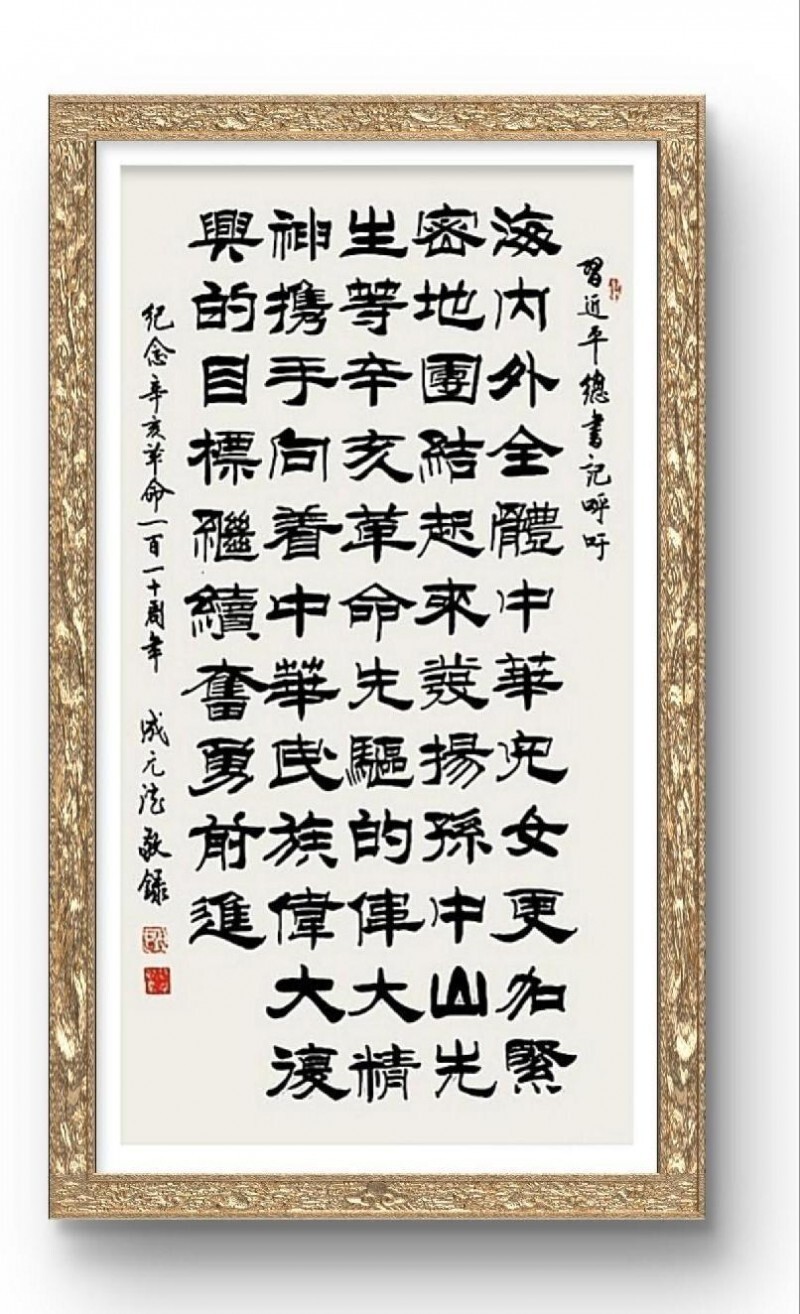 習近平總書記呼吁
海内外全體中華兒女更加緊
密地團結起來發揚孫中山先
生等辛亥革命先驅的偉大精
神携手向着中華民族偉大復
興的目標繼續奮勇前進
紀念辛亥革命一百一十周年 成元敬錄